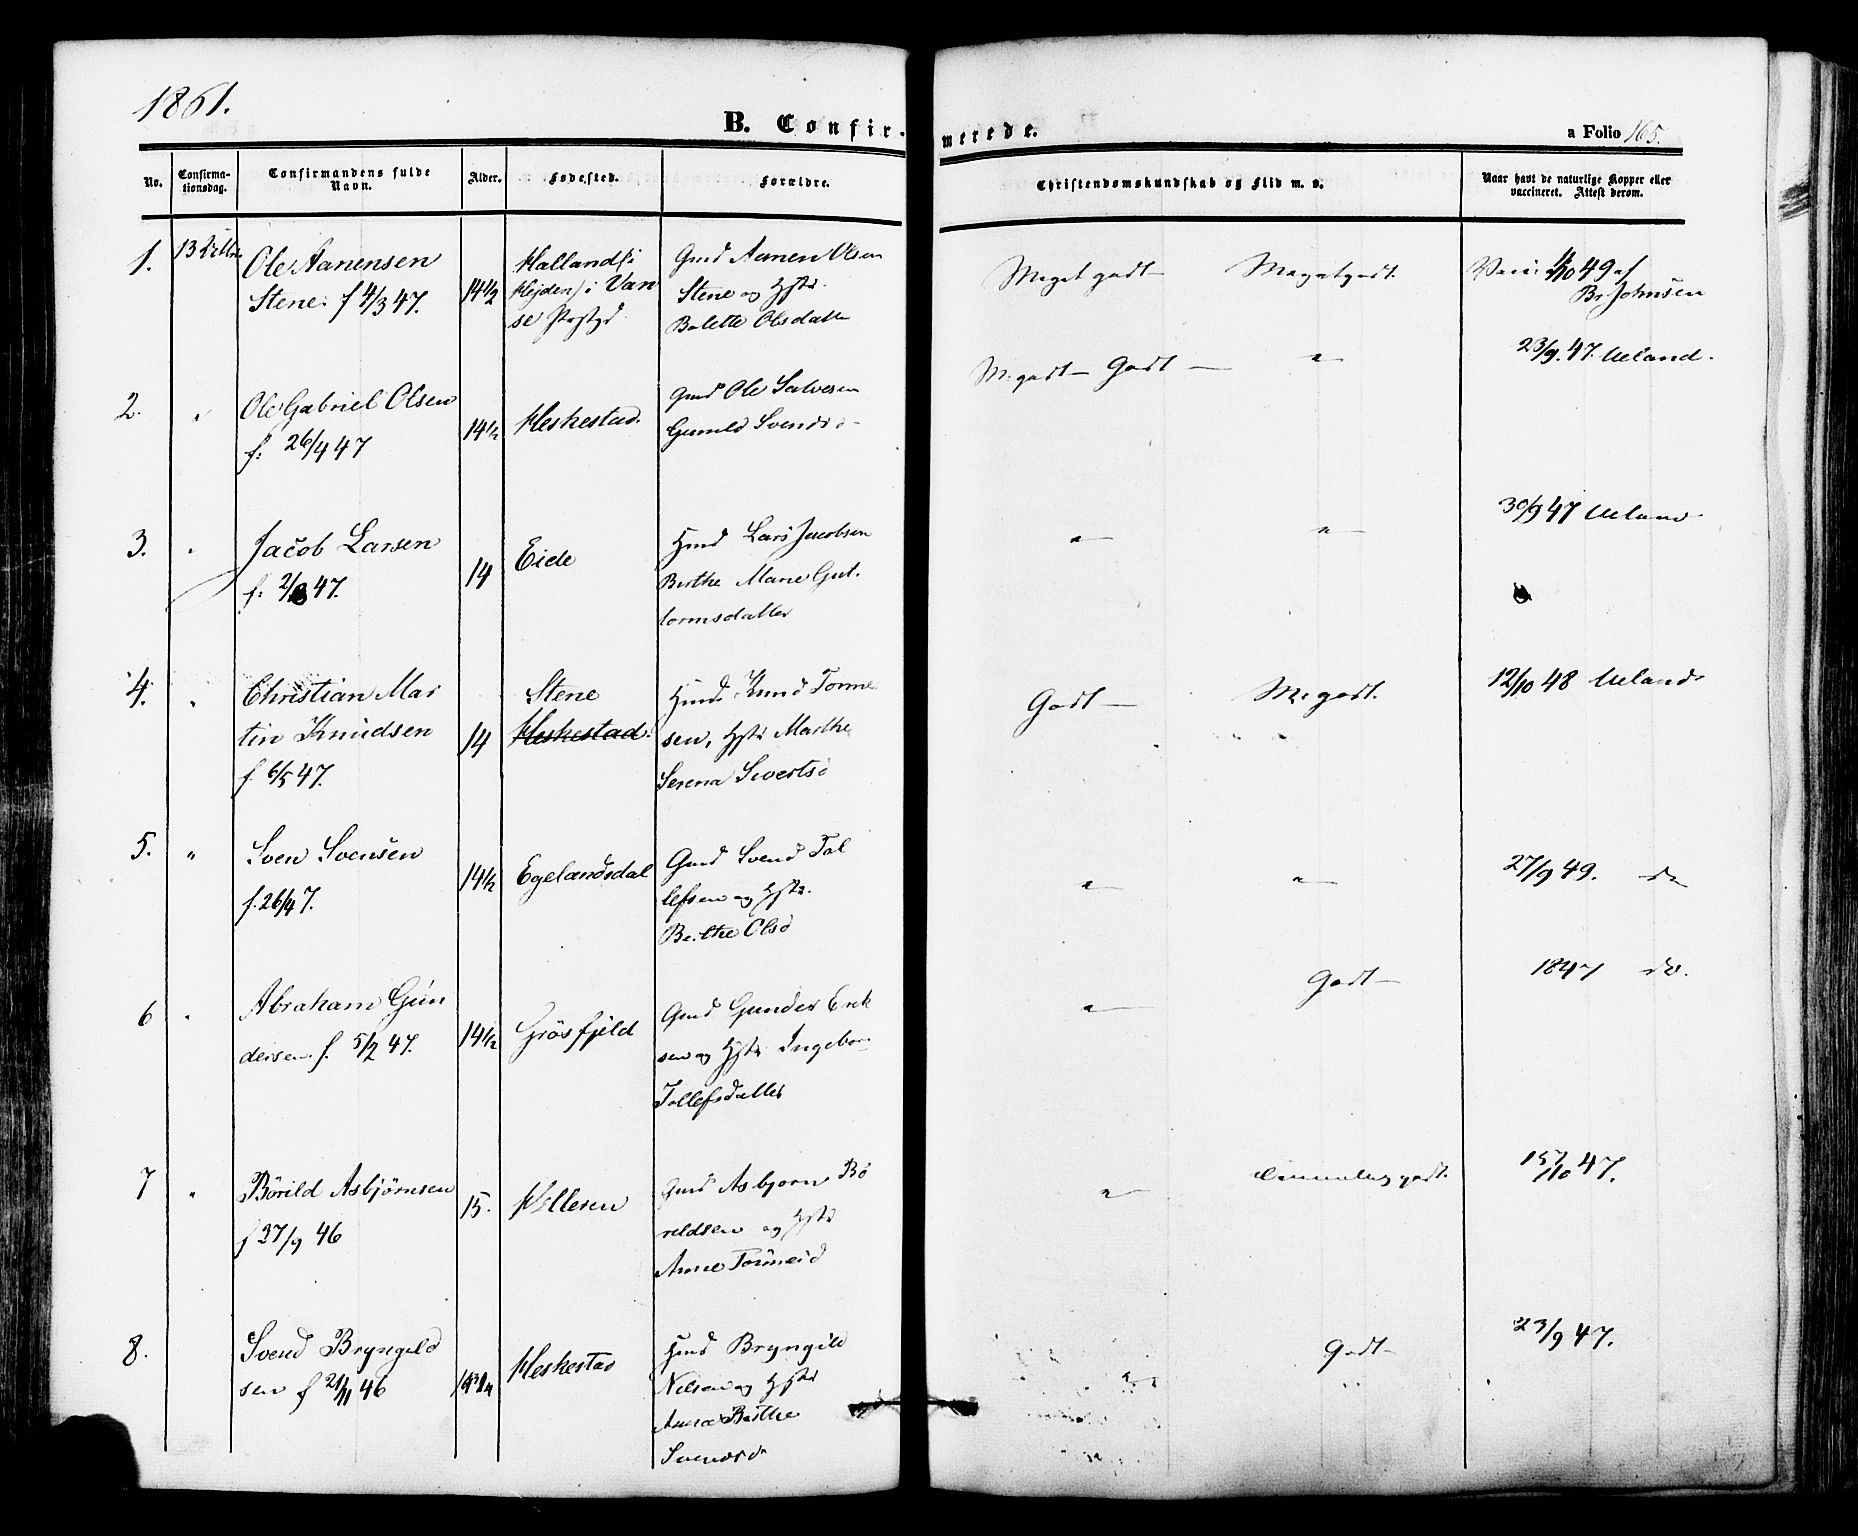 1861.
B. Confirmerede.
a Folio 165.
No.
Confirmationsdag.
Confirmandens fulde Navn.
Alder.
Fødested.
Forældre.
Christendomskundskab og Flid m. v.
Naar havt de naturlige Kopper eller vaccineret. Attest derom.
1.
Ole Aanensen
Stene f 4/3 47.
14 1/2
Halland i
i Van
se
Gmd Aanen Olsen
Stene og Hstr.
Bolette Olsdatter
Meget godt
Meget godt.
4/10 49 af
Br. Johnsen
2.
"
Ole Gabriel Olsen
f. 26/4 47
14 1/2
Heskestad.
Gmd Ole Salvesen
Gunild Svends d
M. godt – Godt
"
23/9. 47. Ueland.
3.
"
Jacob Larsen
f. 2/8 47.
14
Eide
Hmd Lars Jacobsen
Berthe Marie Gut-
tormsdatter
"
"
30/9 47 Ueland
4.
"
Christian Mar
tin Knudsen
f. 6/5 47.
14
Stene
Heskestad.
Hmd. Knud Tønne
sen, Hstr Marthe
Serena Sivertsd
Godt
M. godt.
12/10 48 Ueland
5.
"
Sven Svensen
f. 26/4 7.
14 1/2
Egelandsdal
Gmd Svend Tol
lefsen og Hstr.
Berthe Olsd
"
"
27/9 49. do
6
"
Abraham Gun
dersen. f. 5/2 47.
14 1/2
Grøsfjeld
Gmd Gunder Erik
sen og Hstr Ingebor
Tollefsdatter
"
Godt
1847 do.
7
"
Børild Asbjørnsen
f 27/9 46
15.
Hellesen
Gmd Asbjørn Bø
rildsen og Hstr
Anne
"
godt.
/10 47.
8.
Svend Bryngeld
sen f 21/11 46
Heskestad
Hmd Bryngild
Nilsen og Hstr
Anna Berthe
Svendsd
"
Godt
23/9 47.